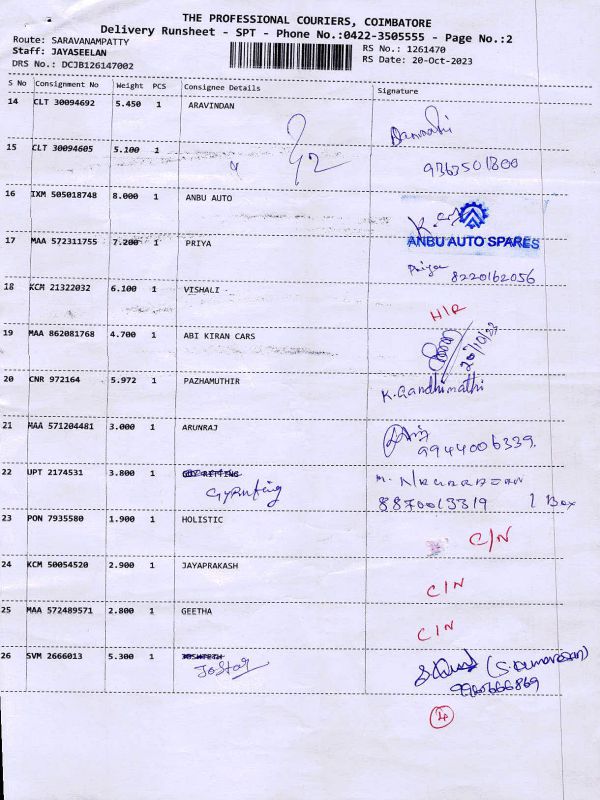 THE PROFESSIONAL COURIERS, COIMBATORE
Delivery Runsheet - SPT - Phone No.:0422-3505555 - Page No.:2
Route: SARAVANAMPATTY
Staff: JAYASEELAN
DRS No.: DCJB126147002
RS No.: 1261470
RS Date: 20-Oct-2023
S No Consignment No Weight PCS Consignee Details Signature
14 CLT 30094692 5.450 1 ARAVINDAN
15 CLT 30094605 5.100 1
9363501800
16 IXM 505018748 8.000 1 ANBU AUTO
ANBU AUTO SPARES
17 MAA 572311755 7.200 1 PRIYA
Priya 8220162056
18 KCM 21322032 6.100 1 VISHALI
H/R
19 MAA 862081768 4.700 1 ABI KIRAN CARS
20/10/23
20 CNR 972164 5.972 1 PAZHAMUTHIR K. Gandhimathi
21 MAA 571204481 3.000 1 ARUNRAJ
9944006339.
22 UPT 2174531 3.800 1
8870013319 1 Box
23 PON 7935580 1.900 1 HOLISTIC
C/N
24 KCM 50054520 2.900 1 JAYAPRAKASH
C/N
25 MAA 572489571 2.800 1 GEETHA
C/N
26 SVM 2666013 5.300 1
JoStar
(S. Kumaresan)